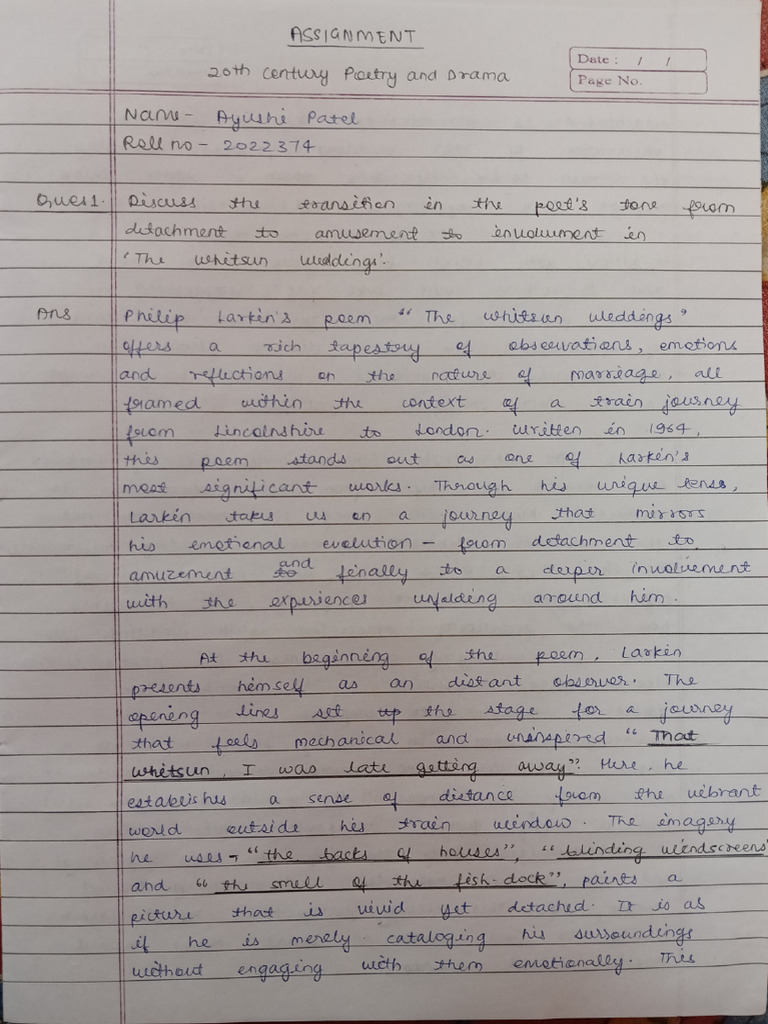 ASSIGNMENT
20th Century Poetry and Drama
Date : / /
Page No.
Name- Ayushi Patel
Roll no - 2022374
Ques1. Discuss the transition in the poet's tone from
detachment to amusement to involvement in
'The whitsun weddings'.
Ans Philip Larkin's poem "The whitsun weddings"
offers a rich tapestory of observations, emotions
and reflections on the nature of marriage, all
framed within the context of a train journey
from Lincolnshire to London. written in 1964,
this poem stands out as one of Larkin's
most significant works. Through his unique lense,
Larkin takes us on a journey that mirrors
his emotional evolution - from detachment to
amuzement and finally to a deeper involvement
with the experiences unfolding around him.
At the beginning of the poem, Larkin
presents himself as an distant observer. The
opening lines set up the stage for a journey
that feels mechanical and uninspired "That
whitsun, I was late getting away". Here, he
establishes a sense of distance from the vibrant
world outside his train window. The imagery
he uses - "the backs of houses", "blinding windscreens"
and "the smell of the fish-dock", paints a
picture that is vivid yet detached. It is as
if he is merely cataloging his surroundings
without engaging with them emotionally. This